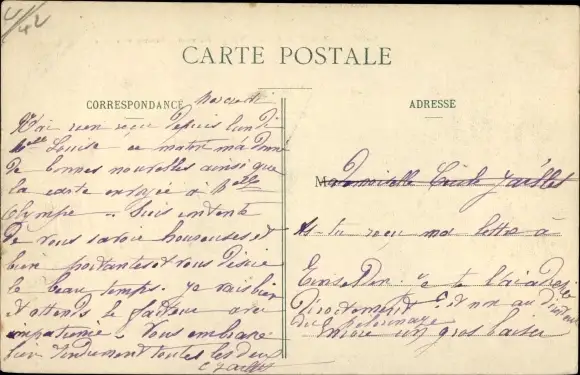 4/42
CARTE POSTALE
CORRESPONDANCE
Mercredi
N'ai rien reçu depuis lundi
Melle Louise ce matin m'a donné
de bonnes nouvelles ainsi que
la carte envoyée à Belle
Olympe. Suis contente
de vous savoir heureuses et
bien portantes et vous désire
le beau temps. Je vais bien
et attends le facteur avec
impatience. Vous embrasse
bien tendrement toutes les deux
ADRESSE
Mademoiselle
As-tu reçu ma lettre à
Einsiedeln. Je te l'ai adressée
directement et non au directeur
du pèlerinage
Encore un gros baiser